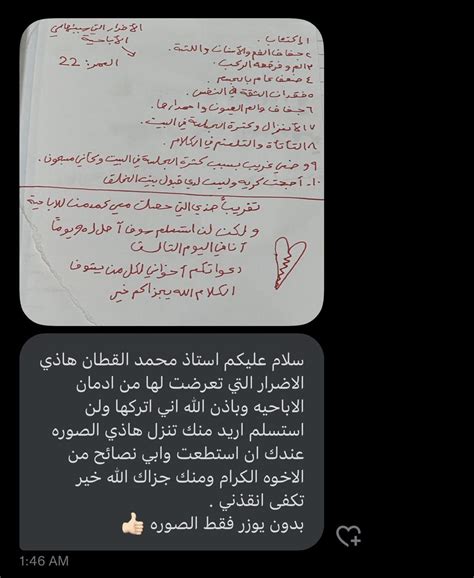 الأضرار التي سببتها لي
الأباحية
العمر: 22
١ الاكتئاب .
٢ جفاف الفم والأسنان واللثة .
٣ الم وفرقعه الركب .
٤ ضعف عام بالجسم
٥ فقدان الثقة في النفس
٦ جفاف والم العيون واحمرارها .
٧ الأنعزال وكثرة الجلسة في البيت .
٨ التأتأة والتلعثم في الكلام .
٩ وضعي غريب بسبب كثرة الجلسة في البيت وكأني مسجون .
١٠ أصبحت كريه وليس لدي قبول بين الخلق
تقريباً هذي التي حصلت معي كمدمن للاباحية
ولكن لن استسلم سوف أصل لـ٩٠ يوماً
أنا في اليوم الثالث
دعواتكم أخواني لكل من يشوف
الكلام الله يجزاكم خير
سلام عليكم استاذ محمد القطان هاذي
الاضرار التي تعرضت لها من ادمان
الاباحيه وباذن الله اني اتركها ولن
استسلم اريد منك تنزل هاذي الصوره
عندك ان استطعت وابي نصائح من
الاخوه الكرام ومنك جزاك الله خير
تكفى انقذني .
بدون يوزر فقط الصوره 👍🏻
1:46 AM